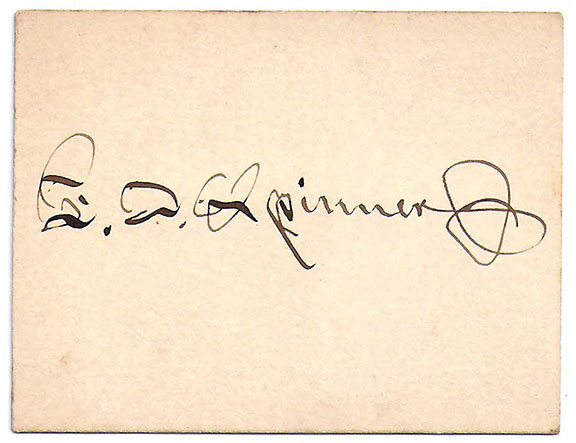 F. E. Spinner